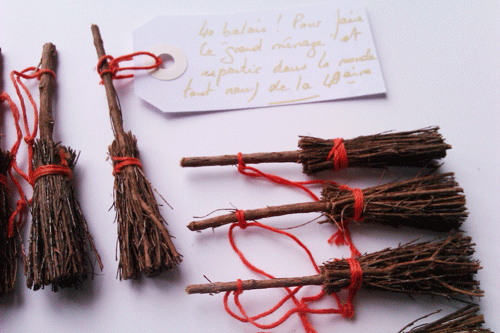 40 balais ! Pour faire
le grand ménage, et
repartir dans le monde
tout neuf de la 40aine